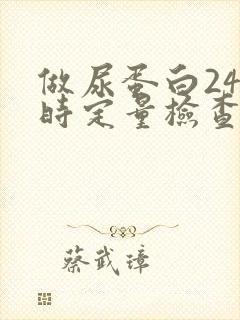 做尿蛋白24
時定量檢查
蔡武璋